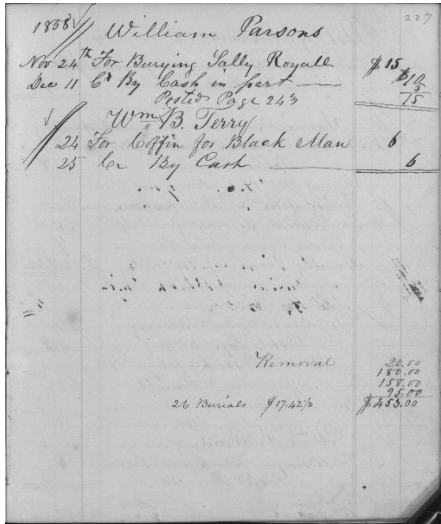 227
1858 William Parsons
Nov 24th For Burying Sally Royall $15
Dec 11 Cr By Cash in part — $10
Posted Page 243 5
15
Wm B. Terry
24 For Coffin for Black Man 6
25 Cr By Cash 6
Removal 20.00
180.00
158.00
95.00
26 Burials $17.42⅓ $453.00